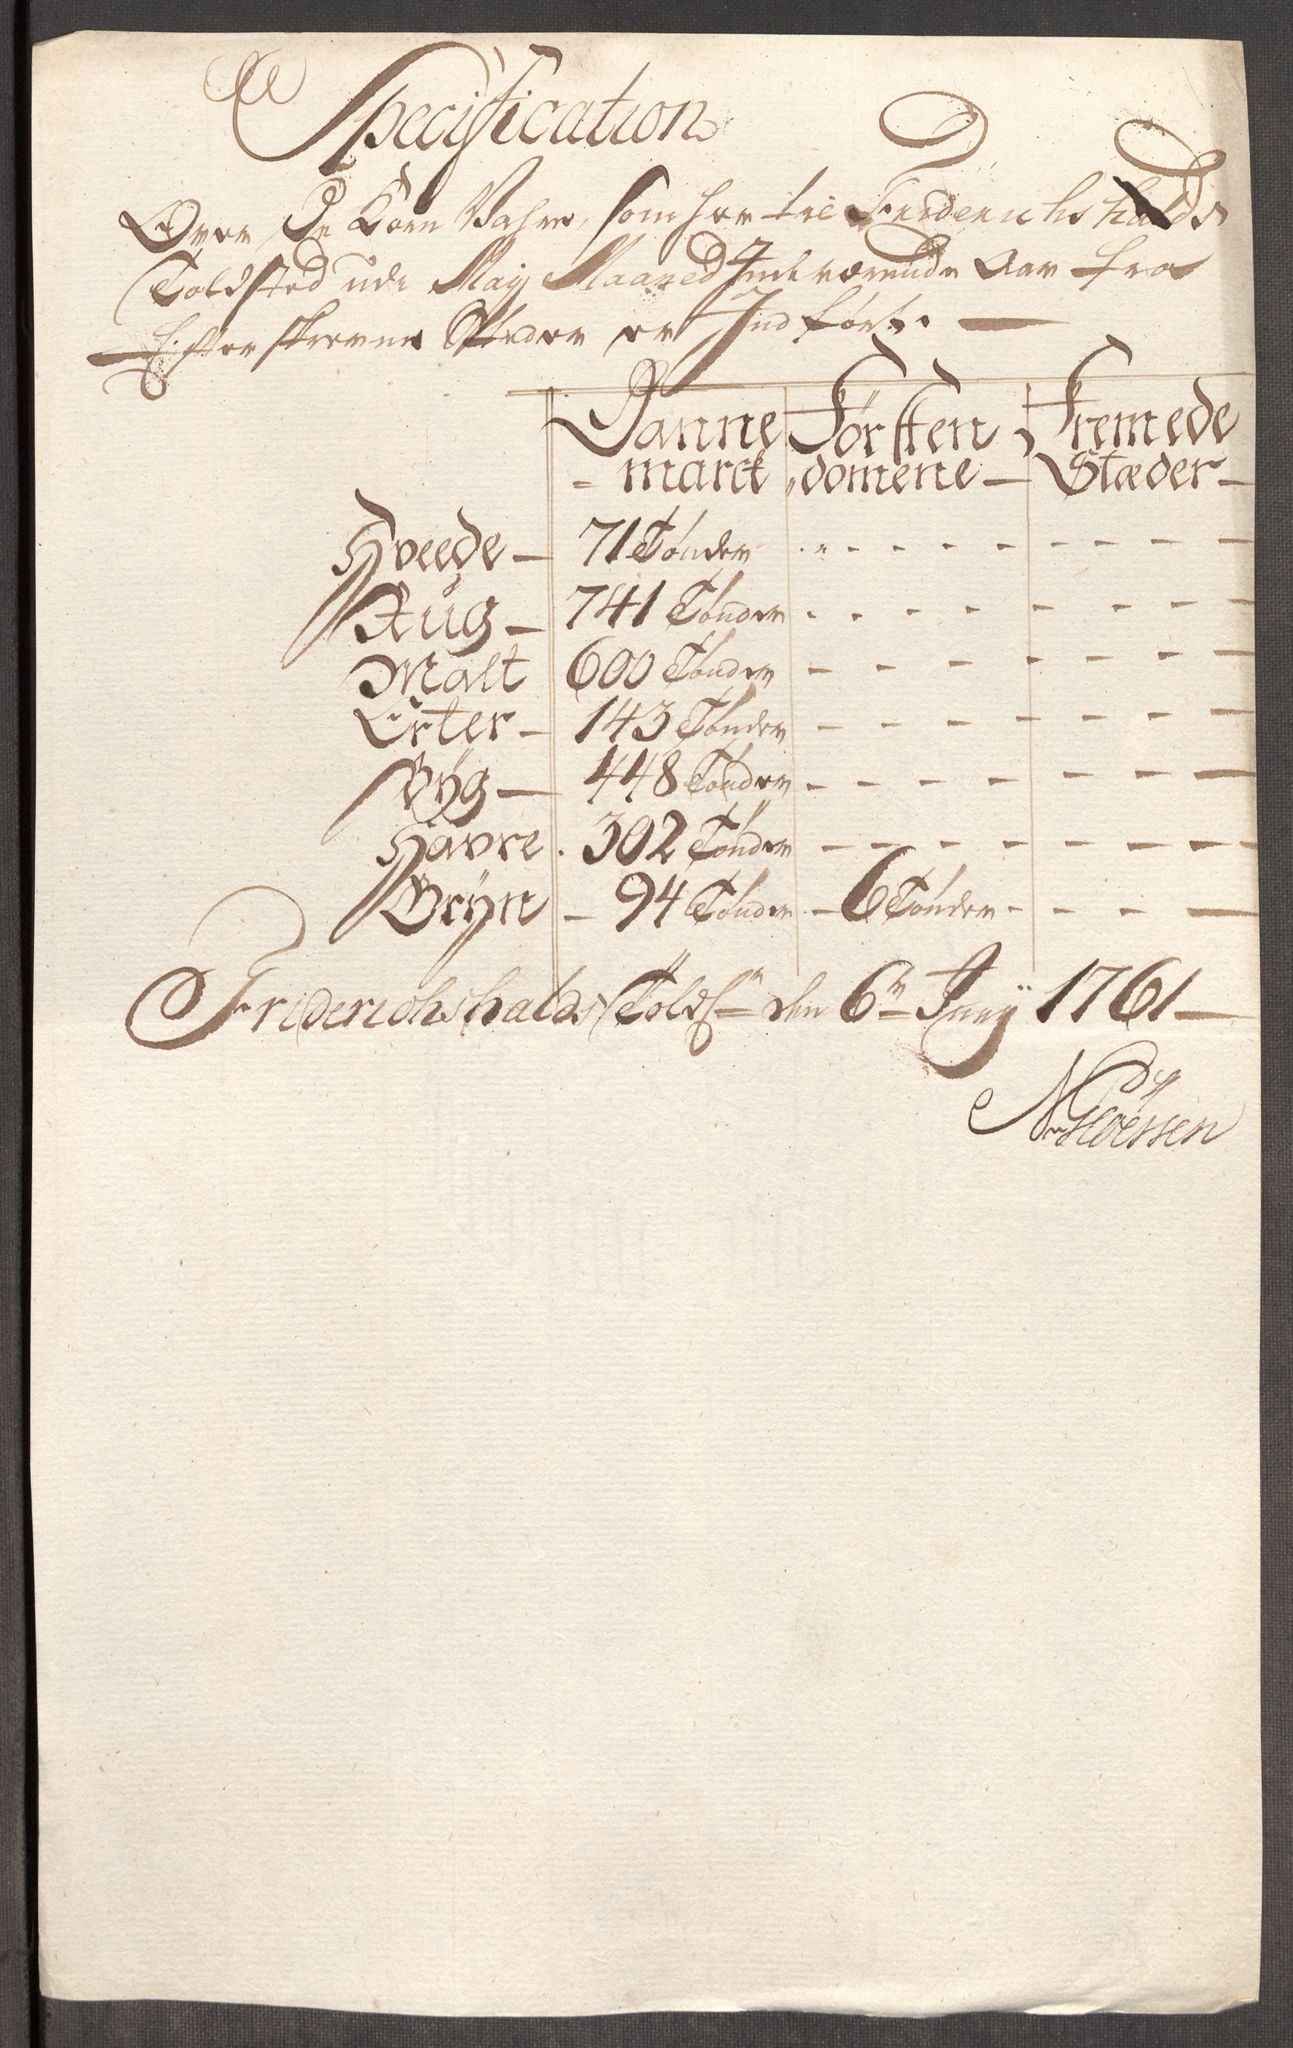 Specification
Over De Korn Vahre, som her til Friderichshalds
Toldsted udi Maij Maaned Indeværende Aar fra
Efterskrevne Stæder er Indført.
Danne Førsten Fremede
marck domene Stæder
Hveede 71 Tønder
Rug 741 Tønder
Malt 600 Tønder
Erter 143 Tønder
Býg 448 Tønder
Havre 302 Tønder
Grÿn 94 Tønder 6 Tønder
Friderichshalds Told den 6te Junij 1761